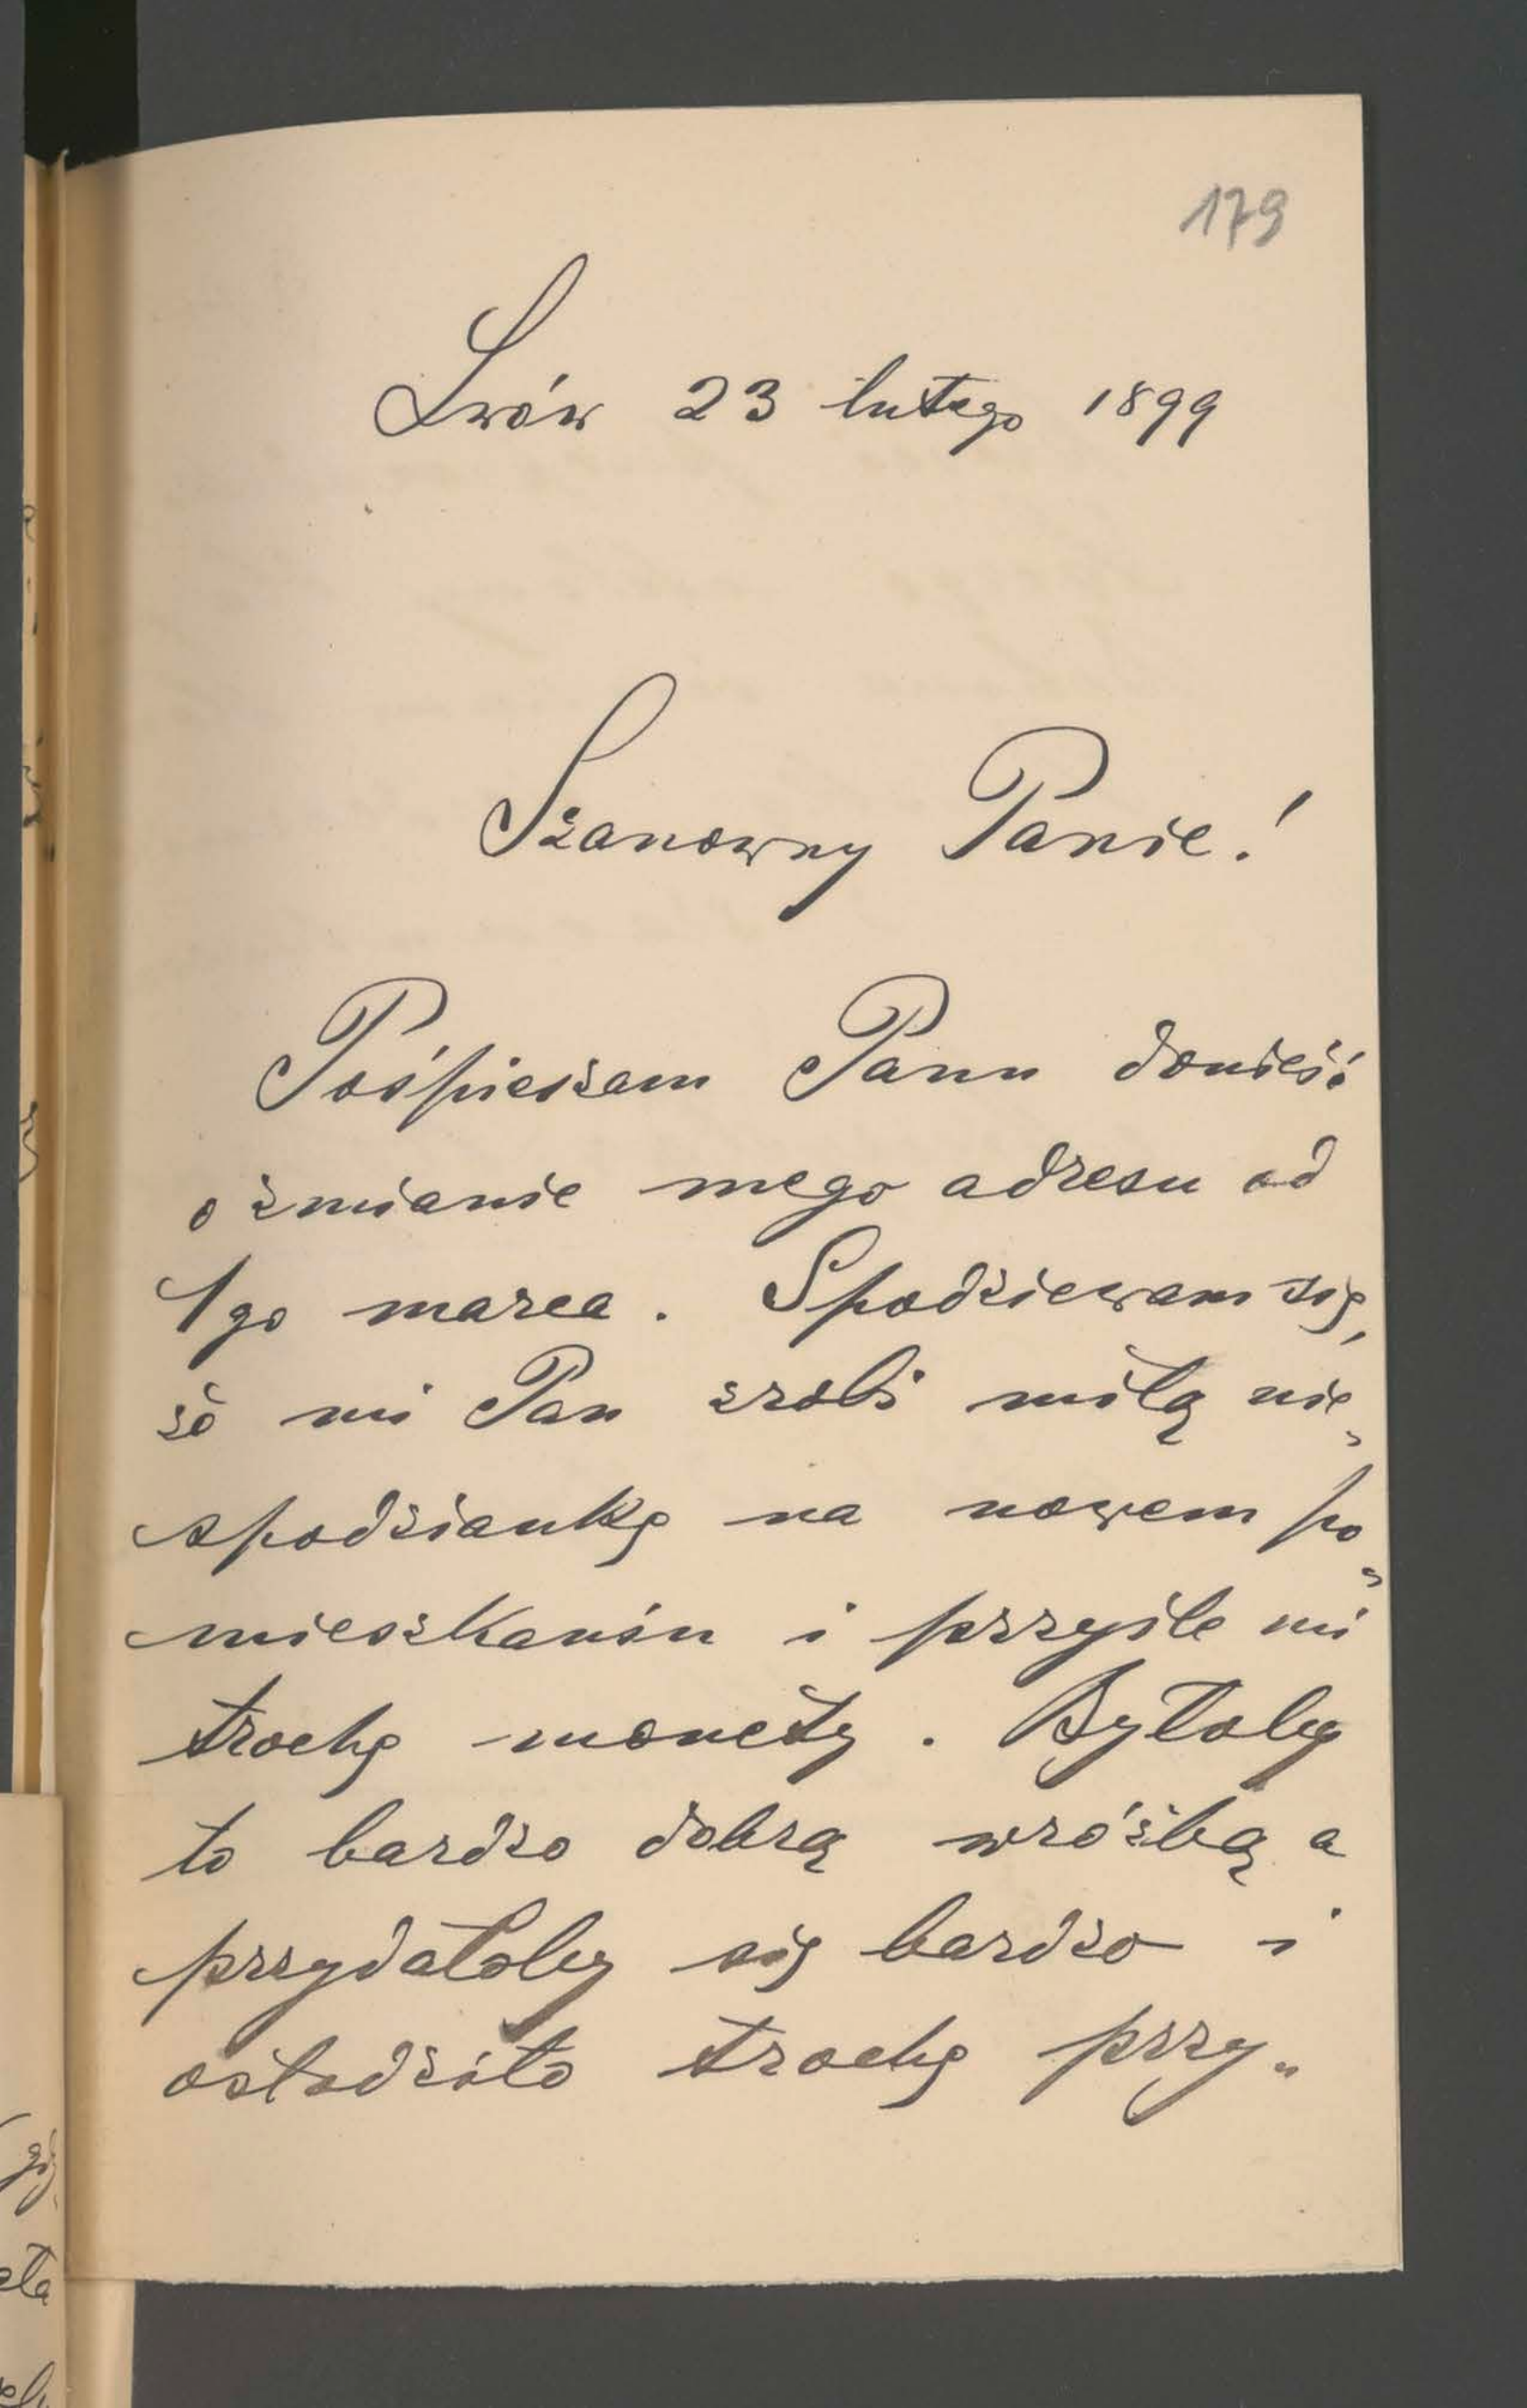 179
Lwów 23 lutego 1899
Szanowny Panie!
Pośpieszam Panu donieść
o zmianie mego adresu od
1go marca. Spodziewam się,
że mi Pan zrobi miłą nie„
spodziankę na nowem po„
mieszkaniu i przyśle mi
trochę monety. Byłoby
to bardzo dobrą wróżbą a
przydałoby się bardzo i
osłodziło trochę przy„